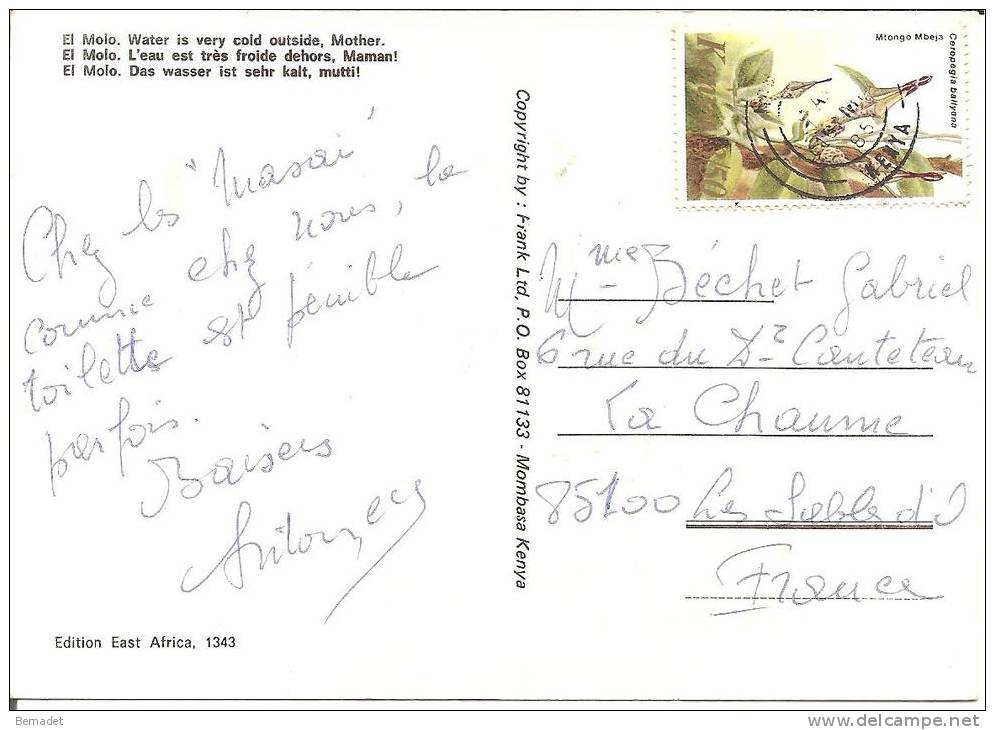 El Molo. Water is very cold outside, Mother.
El Molo. L'eau est très froide dehors, Maman!
El Molo. Das wasser ist sehr kalt, mutti!
Chez les "Masai"
comme chez nous, la
toilette est pénible
parfois.
Baisers
Edition East Africa, 1343
Copyright by: Frank Ltd, P.O. Box 81133 - Mombasa Kenya
Mtongo Mbeja
Ceropegia ballyana
KENYA
Mme Béchet Gabriel
6 rue du Dr Canteteau
La Chaume
85100 Les Sables d'O
France
Bernadet
www.delcampe.net